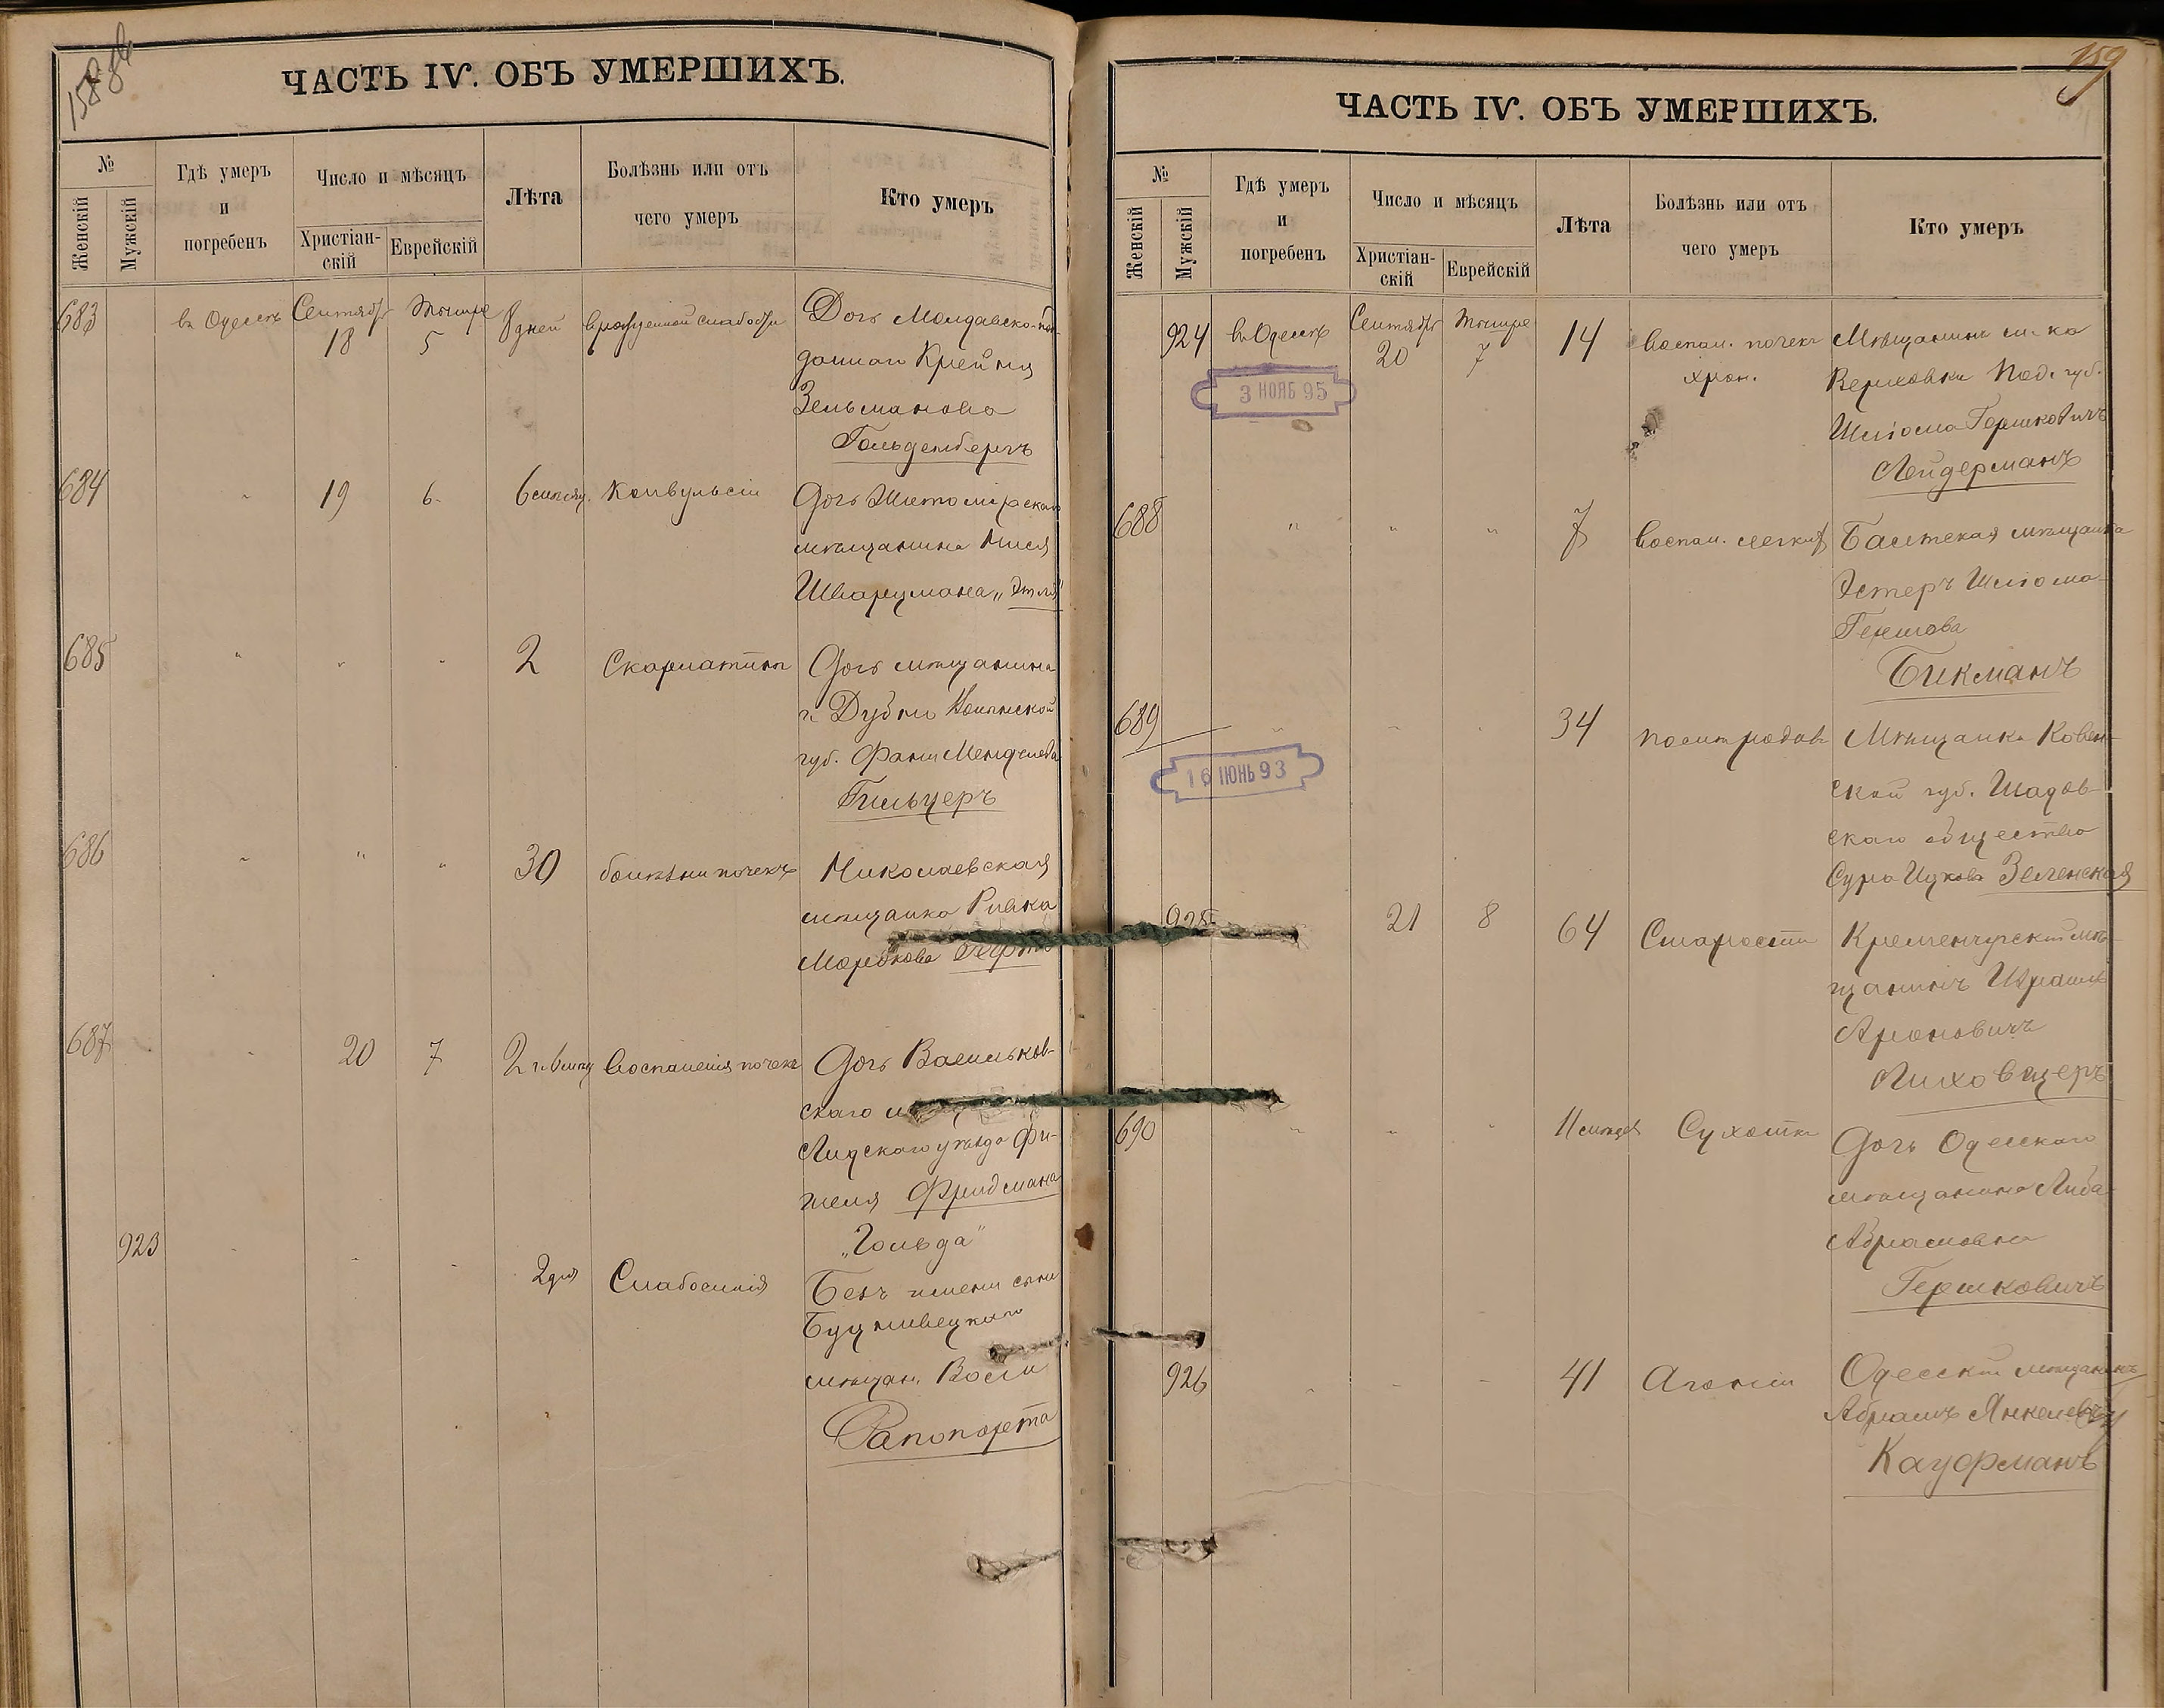 158 об
ЧАСТЬ IV. ОБЪ УМЕРШИХЪ.
№
Женскій
Мужскій
Гдѣ умеръ
и
погребенъ
Число и мѣсяцъ
Христіан-
скій
Еврейскій
Лѣта
Болѣзнь или отъ
чего умеръ
Кто умеръ
683 въ Одессѣ Сентября 18 Тишре 5 8 дней врожденной слабости Дочь Молдавско-под-
даннаго Крейня
Зельманова
Гольденбергъ
684 " 19 6 6 мѣсяц. Конвульсіи Дочь Житомірскаго
мѣщанина
Шварцмана „Этля"
685 " " " 2 Скарлатины Дочь мѣщанина
г. Дубны Волынской
губ. Фани Менделева
Гильцеръ
686 " " " 30 болѣзни почекъ Николаевская
мѣщанка Ривка
Мордкова
687 " 20 7 2 г. 6 мѣц воспаленія почекъ Дочь Васильков-
скаго
Лидскаго уѣзда Фи-
шеля Фридмана
„Гольда"
923 " " " 2 дня Слабосилія Безъ имени сынъ
мѣщан. Восіи
Рапопорта
159
ЧАСТЬ IV. ОБЪ УМЕРШИХЪ.
№
Женскій
Мужскій
Гдѣ умеръ
и
погребенъ
Число и мѣсяцъ
Христіан-
скій
Еврейскій
Лѣта
Болѣзнь или отъ
чего умеръ
Кто умеръ
924 въ Одессѣ Сентября 20 Тишре 7 14 воспал. почекъ
хрон.
Мѣщанинъ м-ка
Верховки Под. губ.
Шліома Гершковичъ
Лейдерманъ
3 НОЯБ 95
688 " " " 7 воспал. легкихъ Балтская мѣщанка
Эстеръ Шліома-
Гершова
Бикманъ
689 " " " 34 Мѣщанка Ковен-
ской губ. Шадов-
скаго общества
Сура Ицкова Зеленская
16 ІЮНЬ 93
925 21 8 64 Старости Кременчугскій мѣ-
щанинъ Израиль
Ароновичъ
Лиховицеръ
690 " " " 11 мѣсяцев Сухотки Дочь Одесскаго
мѣщанина Либа
Абрамовна
Гершковичъ
926 " " " 41 Агоніи Одесскій мѣщанинъ
Абрамъ Янкелевъ
Кауфманъ